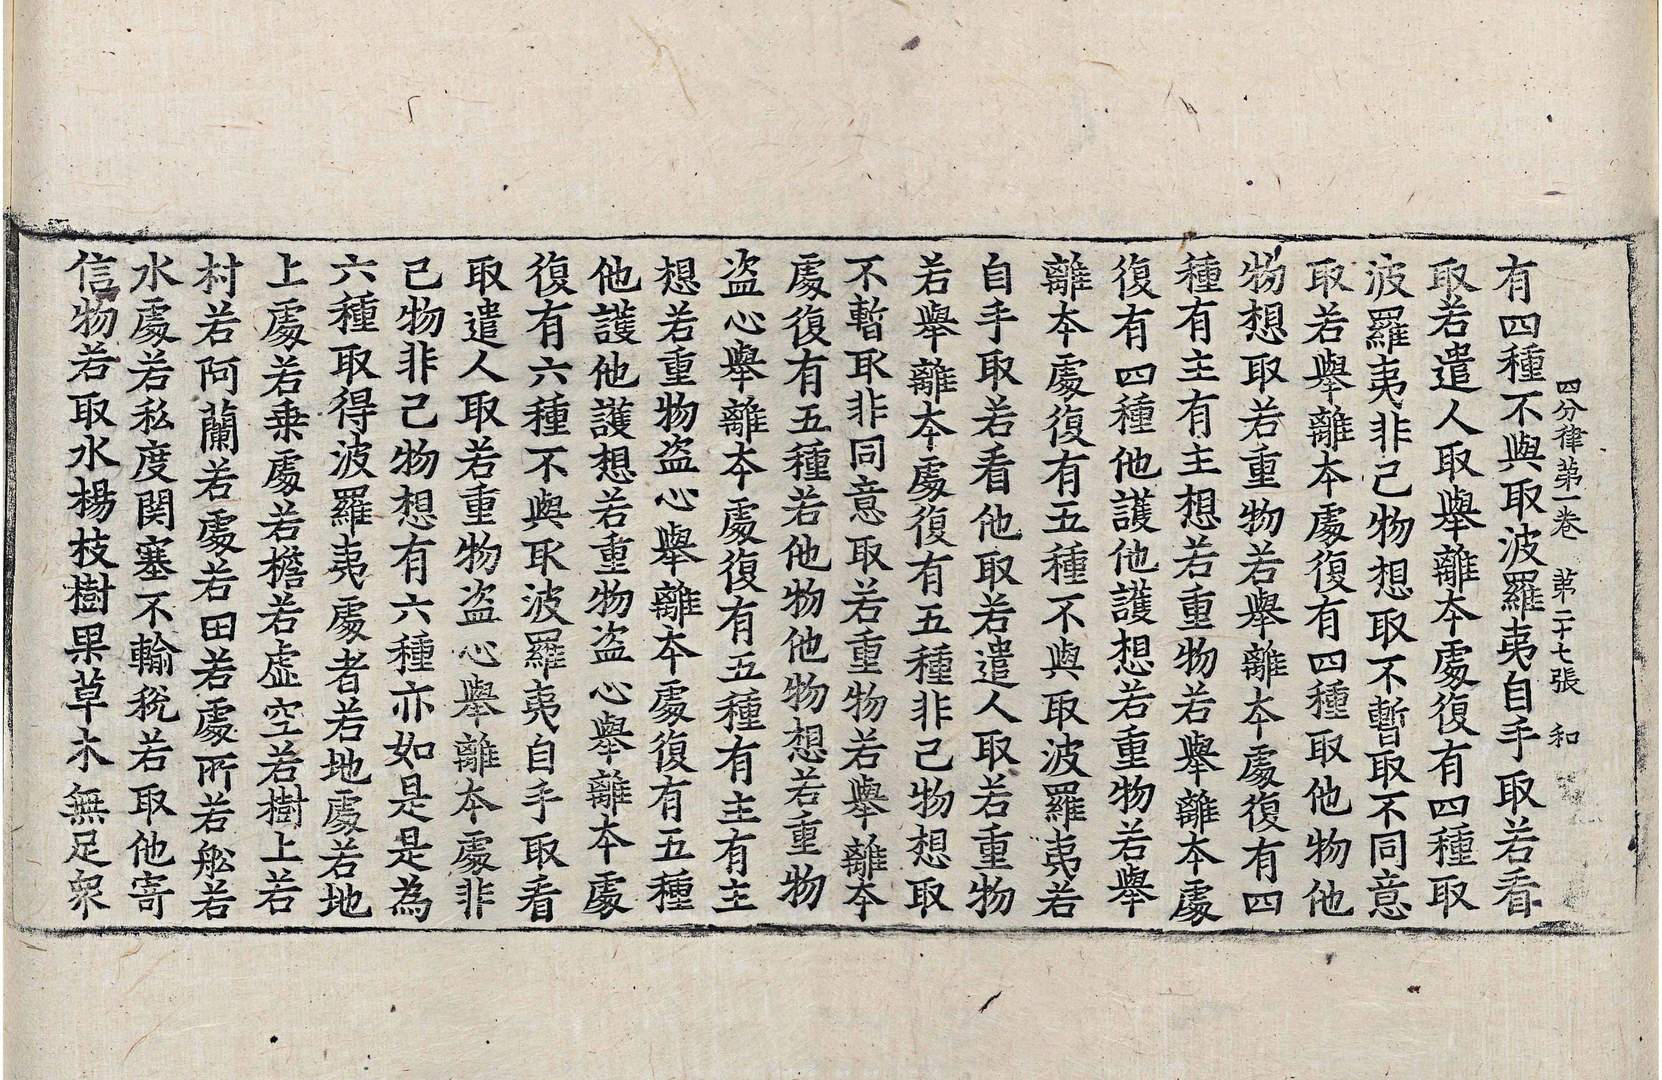 四分律第一卷　第二十七張　和
有四種不與取波羅夷自手取若看
取若遣人取舉離本處復有四種取
波羅夷非己物想取不暫取不同意
取若舉離本處復有四種取他物他
物想取若重物若舉離本處復有四
種有主有主想若重物若舉離本處
復有四種他護他護想若重物若舉
離本處復有五種不與取波羅夷若
自手取若看他取若遣人取若重物
若舉離本處復有五種非己物想取
不暫取非同意取若重物若舉離本
處復有五種若他物他物想若重物
盜心舉離本處復有五種有主有主
想若重物盜心舉離本處復有五種
他護他護想若重物盜心舉離本處
復有六種不與取波羅夷自手取看
取遣人取若重物盜心舉離本處非
己物非己物想有六種亦如是是為
六種取得波羅夷處者若地處若地
上處若乗處若檐若虛空若樹上若
村若阿蘭若處若田若處所若舩若
水處若私度関塞不輸稅若取他寄
信物若取水楊枝樹果草木無足衆